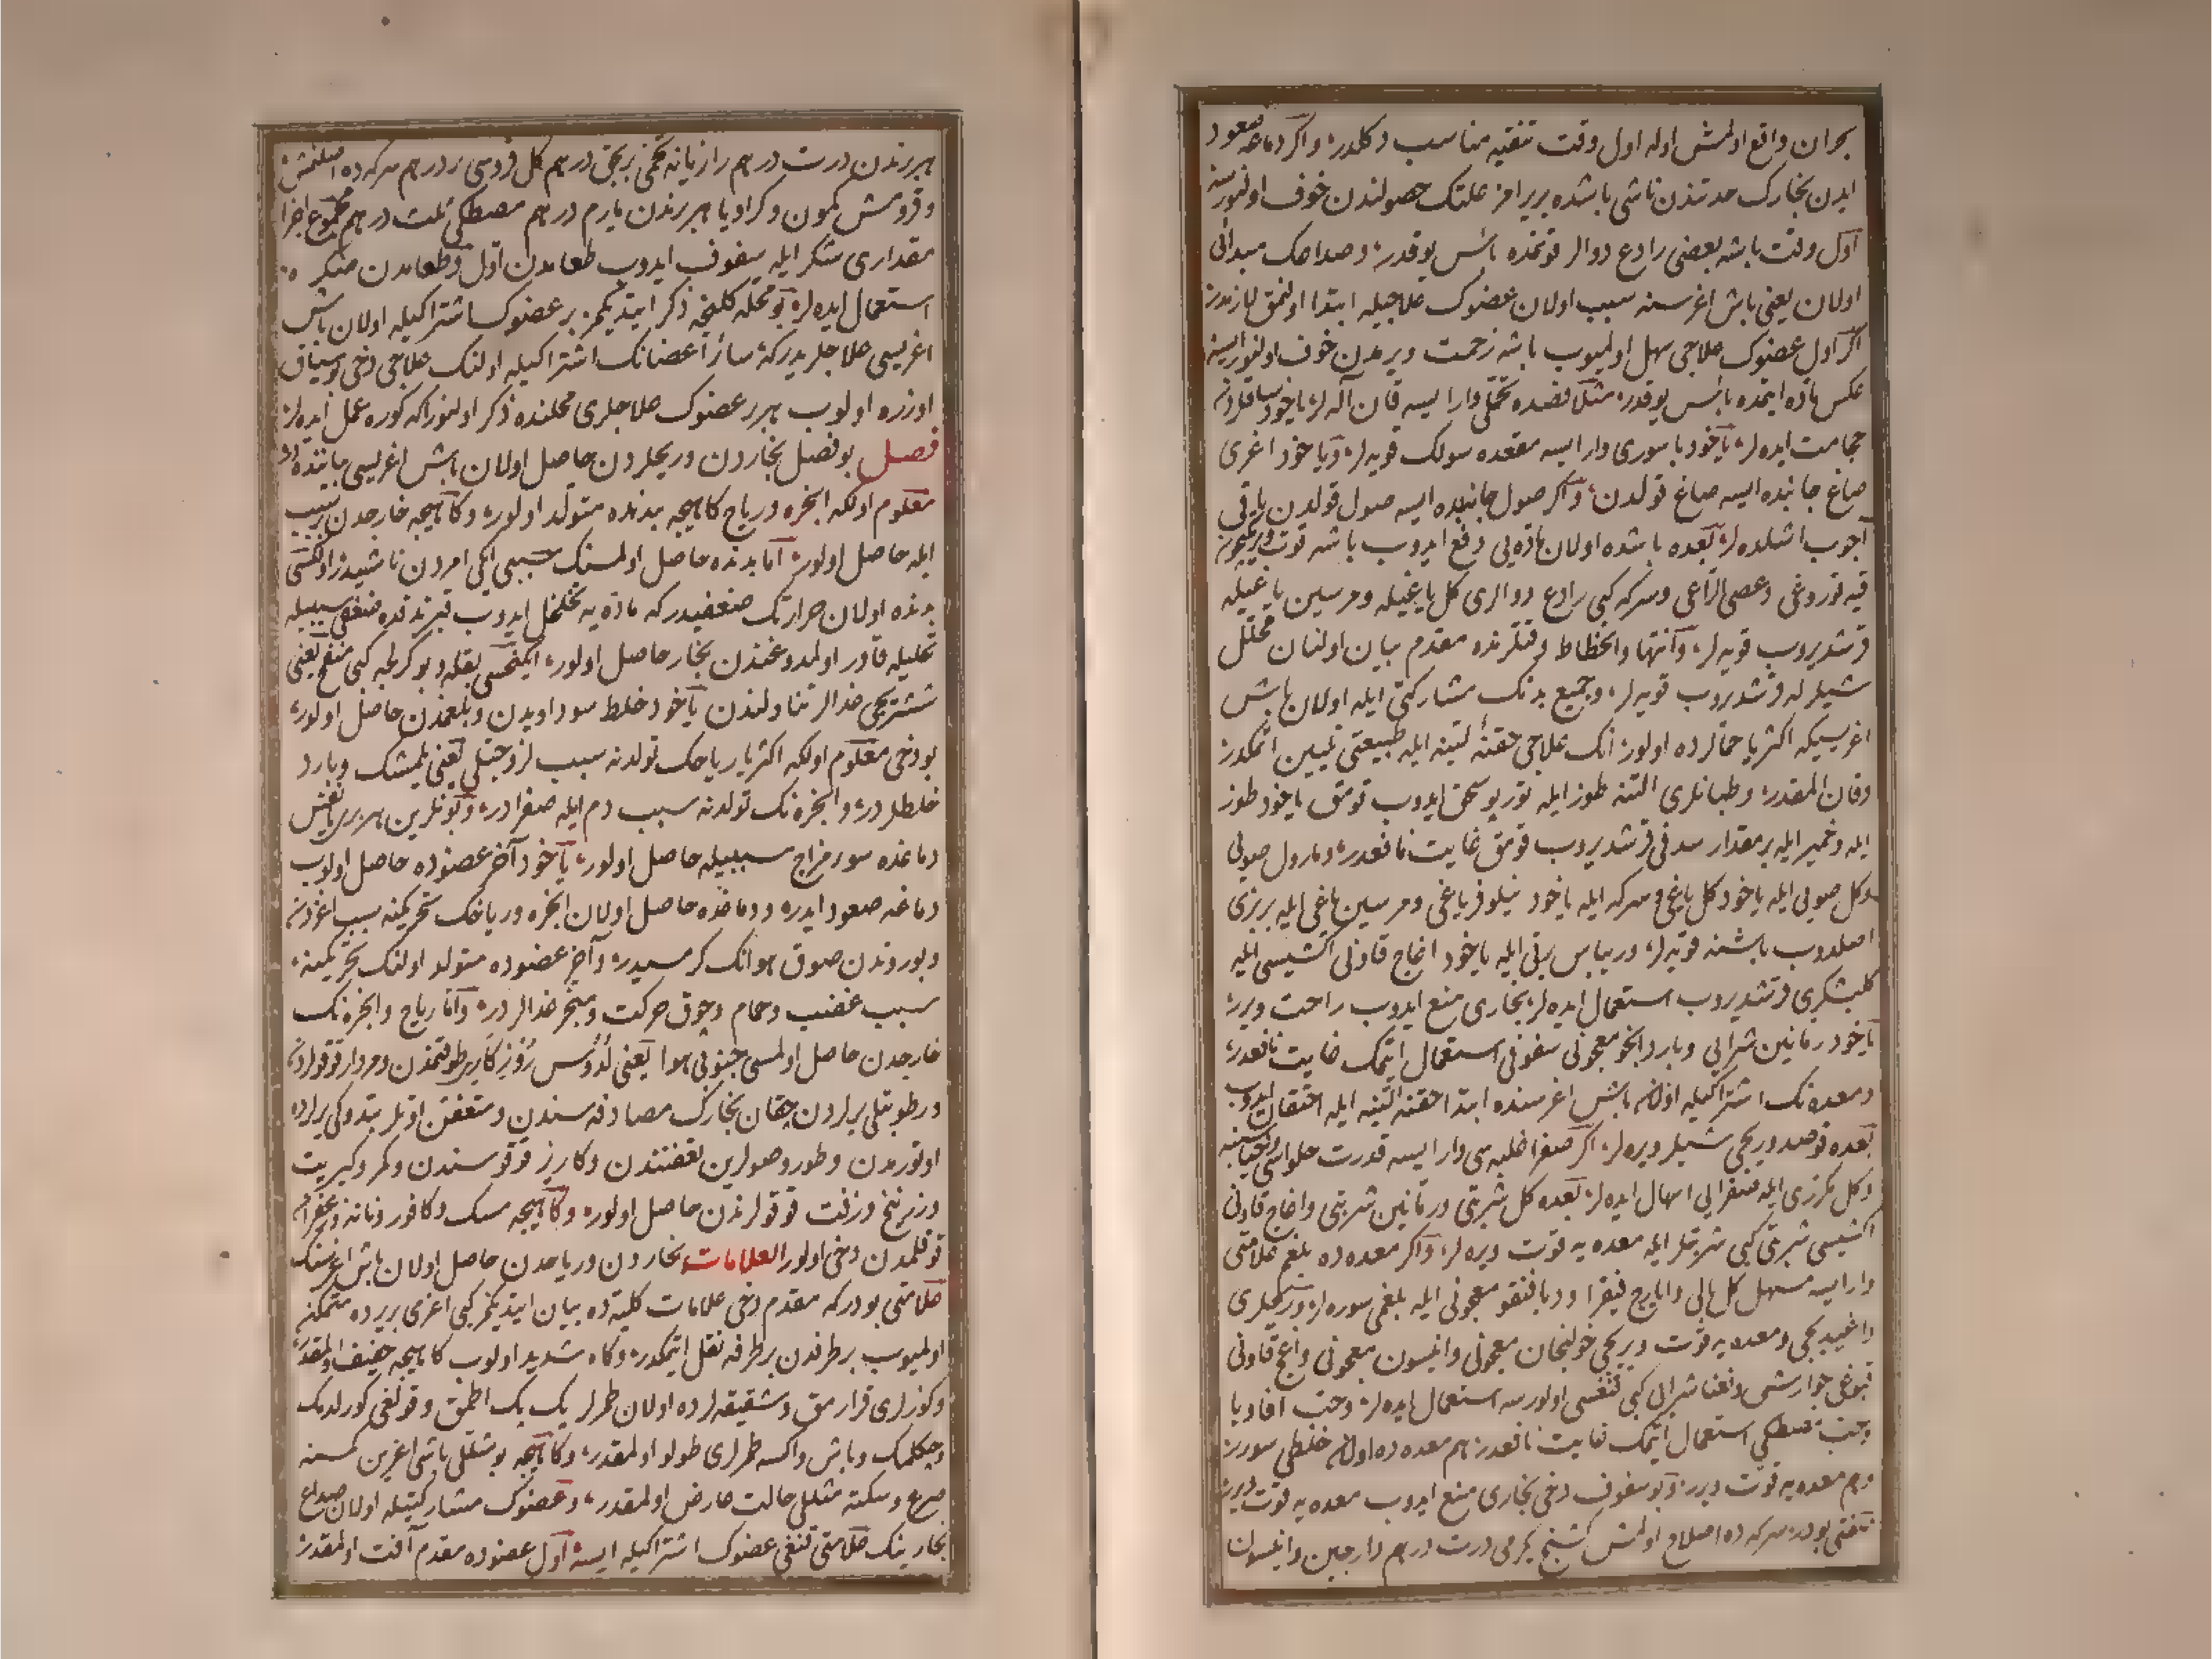 بحران واقع اولمش اوله اول وقت تنقیه مناسب دکلدر و اکر دماغه صعود
ایدن بخارک حدتندن ناشی باشده بریرامز علتک حصولندن خوف اولنورسه
اول وقت باشه بعضی رادع دوالر قونمده بأس یوقدر و صداعک مبدأی
اولان یعنی باش اغرسنه سبب اولان عضوک علاجیله ابتدا اولنمق لازمدر
اکر اول عضوک علاجی سهل اولمیوب باشه زحمت ویرمدن خوف اولنورایسه
عکس ماده ایتمده بأس یوقدر مثلا فصده تحملی وار ایسه قان آله لر یاخود ساقلردن
حجامت ایده لر یاخود باسوری وار ایسه مقعده سولک قویه لر و یاخود اغری
صاغ جانبده ایسه صاغ قولدن و اکر صول جانبده ایسه صول قولدن
آجوب اشلده لر بعده باشده اولان ماده یی دفع ایدوب باشه قوت ویریجی
قیه قوروغی و عصی الراعی و سرکه کبی رادع دوالری کل یاغیله و مرسین یاغیله
قرشدیروب قویه لر و انتها و انحطاط وقتلرنده مقدم بیان اولنان محلل
شیلرله قرشدیروب قویه لر و جمیع بدنک مشارکتی ایله اولان باش
اغریسیکه اکثریا حمالرده اولور انک علاجی حقنه لینه ایله طبیعتی تلیین اتمکدر
وقان المقدر و طبانلری التنه طوز ایله توربو سحق ایدوب قومق یاخود طوز
ایله و خمیر ایله بر مقدار سدفی قرشدیروب قومق غایت نافعدر و مارول صویی
وکل صویی ایله یاخود کل یاغی و سرکه ایله یاخود نیلوفر یاغی و مرسین یاغی ایله بر بزی
اصلدوب باشنه قویه لر و ریباس ربی ایله یاخود اغاج قاونی اکشیسی ایله
کلبشکری قرشدیروب استعمال ایده لر بخاری منع ایدوب راحت ویرر
یاخود رمانین شرابی و بارد انخو معجونی سفوفی استعمال ایتمک غایت نافعدر
و معده نک اشتراکیله اولان باش اغرسنده ابتدا حقنه لینه ایله احتقان ایدوب
بعده قوصدوریجی شیلر ویره لر اکر صفرا غلبه سی وار ایسه قدرت حلواسی
وکل مکرری ایله صفرایی اسهال ایده لر بعده کل شربتی و رمانین شربتی و اغاج قاونی
اکشیسی شربتی کبی شربتلر ایله معده یه قوت ویره لر و اکر معده ده بلغم علامتی
وار ایسه مسهل کل بالی و ایارج فیقرا و دیافنقو معجونی ایله بلغمی سوره لر و ییللری
داغیدیجی و معده یه قوت ویریجی خولنجان معجونی و انیسون معجونی و اغاج قاونی
قبوغی جوارشی و نعنا شرابی کبی قنغسی اولورسه استعمال ایده لر و حب افاویا
و حب مصطکی استعمال ایتمک غایت نافعدر هم معده ده اولان خلطی سورر
و هم معده یه قوت ویرر و بو سفوف دخی بخاری منع ایدوب معده یه قوت ویرر
صفتی بودر سرکه ده اصلاح اولمش کشنیج یکرمی درت درهم دارچین و انیسون
هر برندن درت درهم رازیانه تخمی بر بچق درهم کل فردوسی بر درهم سرکه ده اصلنمش
و قرومش کمون و کراویا هر برندن یارم درهم مصطکی ثلث درهم مجموع اجزا
مقداری شکر ایله سفوف ایدوب طعامدن اول و طعامدن صکره
استعمال ایده لر بو محله کلنجه ذکر ایتدیکمز بر عضوک اشتراکیله اولان باش
اغریسی علاجلریدر که سائر اعضانک اشتراکیله اولنک علاجی دخی بو سیاق
اوزره اولوب هر بر عضوک علاجلری محلنده ذکر اولنور اکه کوره عمل ایده لر
فصل بو فصل بخاردن و ریحلردن حاصل اولان باش اغریسی بیاننده در
معلوم اولکه ابخره و ریاح کاهیجه بدنده متولد اولور و کاهیجه خارجدن بر سبب
ایله حاصل اولور اما بدنده حاصل اولمسنک سببی ایکی امردن ناشیدر اولکسی
بدنده اولان حرارتک ضعفیدر که ماده یه تخلخل ایدوب ضعفی سببیله
تحلیله قادر اولمدوغندن بخار حاصل اولور ایکنجسی بقله و بوکرلجه کبی منفخ یعنی
شیشریجی غدالر تناولندن یاخود خلط سوداویدن و بلغمدن حاصل اولور
بودخی معلوم اولکه اکثریا ریاحک تولدنه سبب لزوجتلی یعنی یلمشک و بارد
خلطلردر و ابخره نک تولدنه سبب دم ایله صفرادر و بونلرین هر بری یا نفس
دماغده سوء مزاج سببیله حاصل اولور یاخود آخر عضوده حاصل اولوب
دماغه صعود ایدر و دماغده حاصل اولان ابخره و ریاحک تحریکینه سبب
و بوروندن صوق هوانک کرمسیدر و آخر عضوده متولد اولنک تحریکینه
سبب غضب و حمام و چوق حرکت و مبخر غدالردر و اما ریاح و ابخره نک
خارجدن حاصل اولمسی جنوبی هوا یعنی لدوس روزکاریر طوقنمدن و مردار قوقولردن
و رطوبتلی یرلردن چقان بخارک مصادفه سندن و متعفن اوتلر بتدوکی یرلرده
اوتورمدن و طورر صولرین تعفنندن و کاریز قوقوسندن و کمر و کبریت
و زرنیخ و زفت قوقولرندن حاصل اولور و کاهیجه مسک و کافور و زعفران
قوقلمدن دخی اولور العلامات بخاردن و ریاحدن حاصل اولان باش اغرسنک
علامتی بودر که مقدم دخی علامات کلیه ده بیان ایتدیکمز کبی اغری بر یرده متمکن
اولمیوب بر طرفدن بر طرفه نقل ایتمکدر و کاه شدید اولوب کاهیجه خفیف اولمقدر
و کوزلری قرارمق و شقیقه لرده اولان طمرلر پک پک اطمق و قولغی کورلدمک
وچکلمک و باش و اکسه طمرلری طولو اولمقدر و کاهیجه بو شکلی باشی اغرین کمسنه
صرع و سکته مثللی حالت عارض اولمقدر و عضوک مشارکتیله اولان صداع
بخارینک علامتی قنغی عضوک اشتراکیله ایسه اول عضوده مقدم آفت اولمقدر